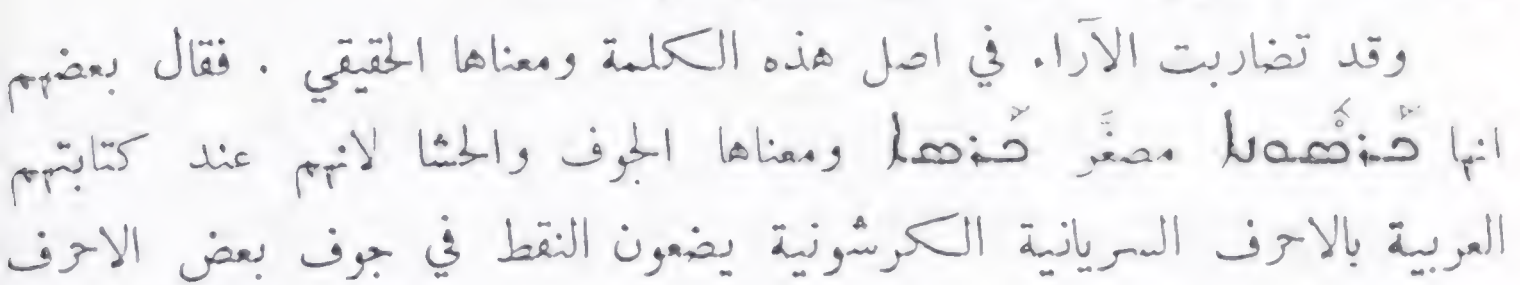 وقد تضاربت الآراء في اصل هذه الكلمة ومعناها الحقيقي . فقال بعضهم
انها ܟܰܪܣܽܘܢܐ مصغَّر ܟܰܪܣܐ ومعناها الجوف والحشا لانهم عند كتابتهم
العربية بالاحرف السريانية الكرشونية يضعون النقط في جوف بعض الاحرف